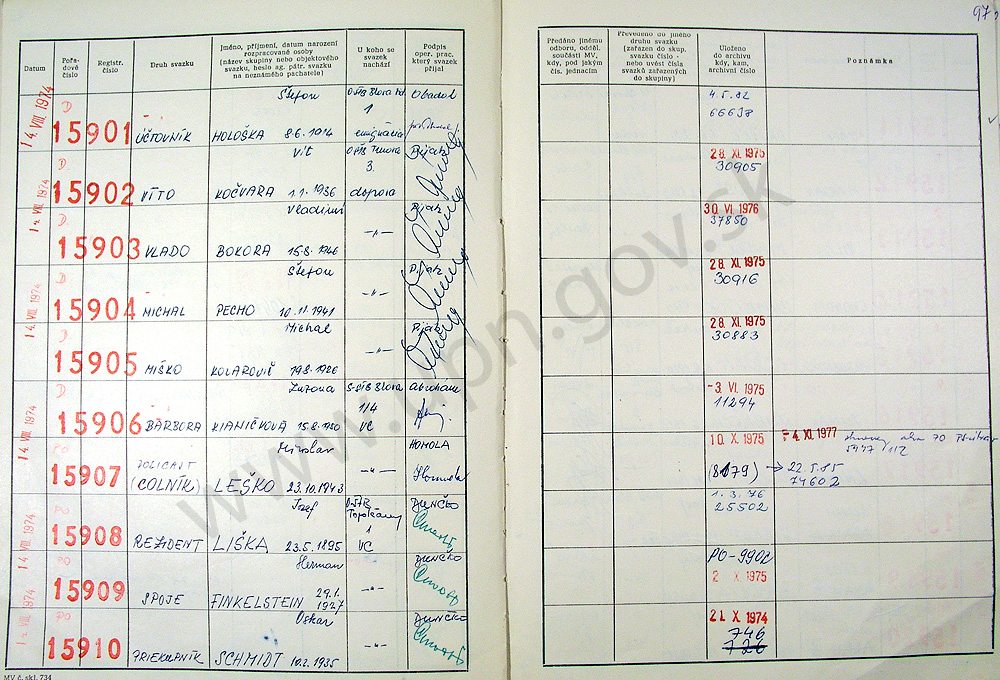 97
Datum
Pořadové číslo
Registr. číslo
Druh svazku
Jméno, příjmení, datum narození
rozpracované osoby
(název skupiny nebo objektového
svazku, heslo ag. pátr. svazku
na neznámého pachatele)
U koho se
svazek
nachází
Podpis
oper. prac.
který svazek
přijal
Předáno jinému
odboru, odděl.
součásti MV,
kdy, pod jakým
čís. jednacím
Převedeno do jiného
druhu svazku
(zařazen do skup.
svazku číslo -
nebo uvést čísla
svazků zařazených
do skupiny)
Uloženo
do archivu
kdy, kam,
archivní číslo
Poznámka
14. VIII. 1974
D
15901
ÚČTOVNÍK
Štefan
HOLOŠKA 8.6.1914
1
emigrácia
Obadal
4.5.82
66638
14. VIII. 1974
D
15902
VÍTO
Vít
KOČVARA 1.1.1936
3.
doprava
Rijak
28. XI. 1975
30905
D
15903
VLADO
Vladimír
BOKORA 15.8.1946
-„-
Rijak
30. VI 1976
37850
14. VIII. 1974
D
15904
MICHAL
Štefan
PECHO 10.11.1941
-„-
Rijak
28. XI. 1975
30916
D
15905
MIŠKO
Michal
KOLAROVIČ 19.8.1926
-„-
Rijak
28. XI. 1975
30883
14. VIII. 1974
D
15906
BÁRBORA
Zuzana
KIANIČKOVÁ 15.8.1950
S-ŠtB Blava
1/4
VC
Abraham
-3. VI. 1975
11294
PO
15907
POLICAJT
(COLNÍK)
Miroslav
LEŠKO 23.10.1943
-„-
HOMOLA
10. X. 1975
-4. XI. 1977
(8179) → 22.5.85
74602
14. VIII. 1974
PO
15908
REZIDENT
Jozef
LIŠKA 23.5.1895
Topoľčany
1
VC
DUNČKO
1.3.76
25502
PO
15909
SPOJE
Herman
FINKELSTEIN 29.1.
1927
-„-
DUNČKO
PO-9902
2 X 1975
14. VIII. 1974
PO
15910
PRIEKUPNÍK
Oskar
SCHMIDT 10.2.1935
-„-
DUNČKO
21. X 1974
746
726
MV č. skl. 734
www.upn.gov.sk